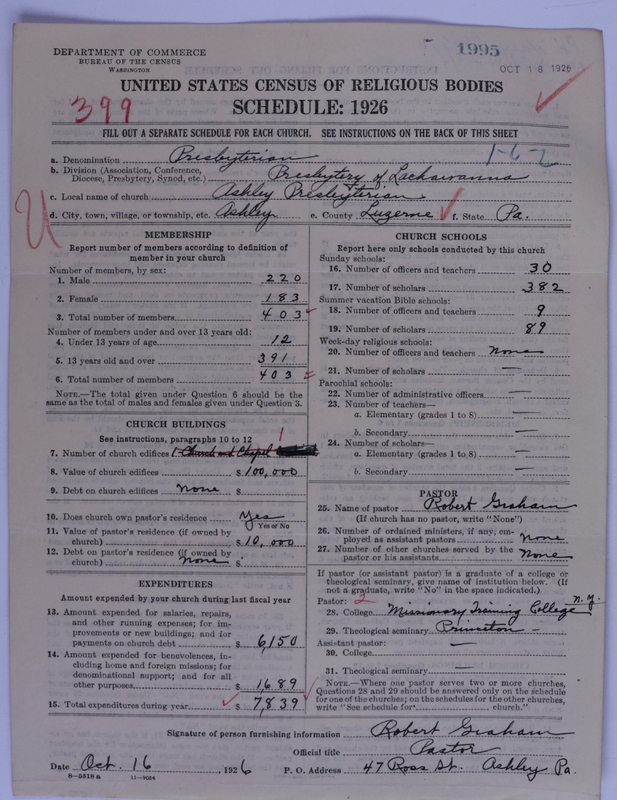 1995
OCT 18 1926
DEPARTMENT OF COMMERCE
BUREAU OF THE CENSUS
WASHINGTON
UNITED STATES CENSUS OF RELIGIOUS BODIES
399
SCHEDULE: 1926
FILL OUT A SEPARATE SCHEDULE FOR EACH CHURCH. SEE INSTRUCTIONS ON THE BACK OF THIS SHEET
1-6-2
a. Denomination Presbyterian
b. Division (Association, Conference,
Diocese, Presbytery, Synod, etc.) Presbytery of Lackawanna
c. Local name of church Ashley Presbyterian
d. City, town, village, or township, etc. Ashley e. County Luzerne f. State Pa.
MEMBERSHIP
Report number of members according to definition of
member in your church
Number of members, by sex:
1. Male 220
2. Female 183
3. Total number of members 403
Number of members under and over 13 years old:
4. Under 13 years of age 12
5. 13 years old and over 391
6. Total number of members 403
NOTE.—The total given under Question 6 should be
same as the total of males and females given under Question 3.
CHURCH BUILDINGS
See instructions, paragraphs 10 to 12
7. Number of church edifices 1 Church and Chapel 1
8. Value of church edifices $100,000
9. Debt on church edifices None $
10. Does church own pastor's residence Yes
Yes or No
11. Value of pastor's residence (if owned by
church) $10,000
12. Debt on pastor's residence (if owned by
church) None $
EXPENDITURES
Amount expended by your church during last fiscal year
13. Amount expended for salaries, repairs,
and other running expenses; for im-
provements or new buildings; and for
payments on church debt $6,150
14. Amount expended for benevolences, in-
cluding home and foreign missions; for
denominational support; and for all
other purposes $1,689
15. Total expenditures during year $7,839
CHURCH SCHOOLS
Report here only schools conducted by this church
Sunday schools:
16. Number of officers and teachers 30
17. Number of scholars 382
Summer vacation Bible schools:
18. Number of officers and teachers 9
19. Number of scholars 89
Week-day religious schools:
20. Number of officers and teachers None
21. Number of scholars —
Parochial schools:
22. Number of administrative officers —
23. Number of teachers—
a. Elementary (grades 1 to 8) —
b. Secondary —
24. Number of scholars—
a. Elementary (grades 1 to 8) —
b. Secondary —
PASTOR
25. Name of pastor Robert Graham
(If church has no pastor, write "None")
26. Number of ordained ministers, if any, em-
ployed as assistant pastors None
27. Number of other churches served by the
pastor or his assistants None
If pastor (or assistant pastor) is a graduate of a college or
theological seminary, give name of institution below. (If
not a graduate, write "No" in the space indicated.)
Pastor: 2
28. College Missionary Training College N.Y.
29. Theological seminary Princeton
Assistant pastor: —
30. College
31. Theological seminary —
NOTE.—Where one pastor serves two or more churches,
Questions 28 and 29 should be answered only on the schedule
for one of the churches; on the schedules for the other churches,
write "See schedule for church."
Signature of person furnishing information Robert Graham
Official title Pastor
Date Oct. 16, 1926 P. O. Address 47 Ross St. Ashley Pa.
8-5518a 11-9054